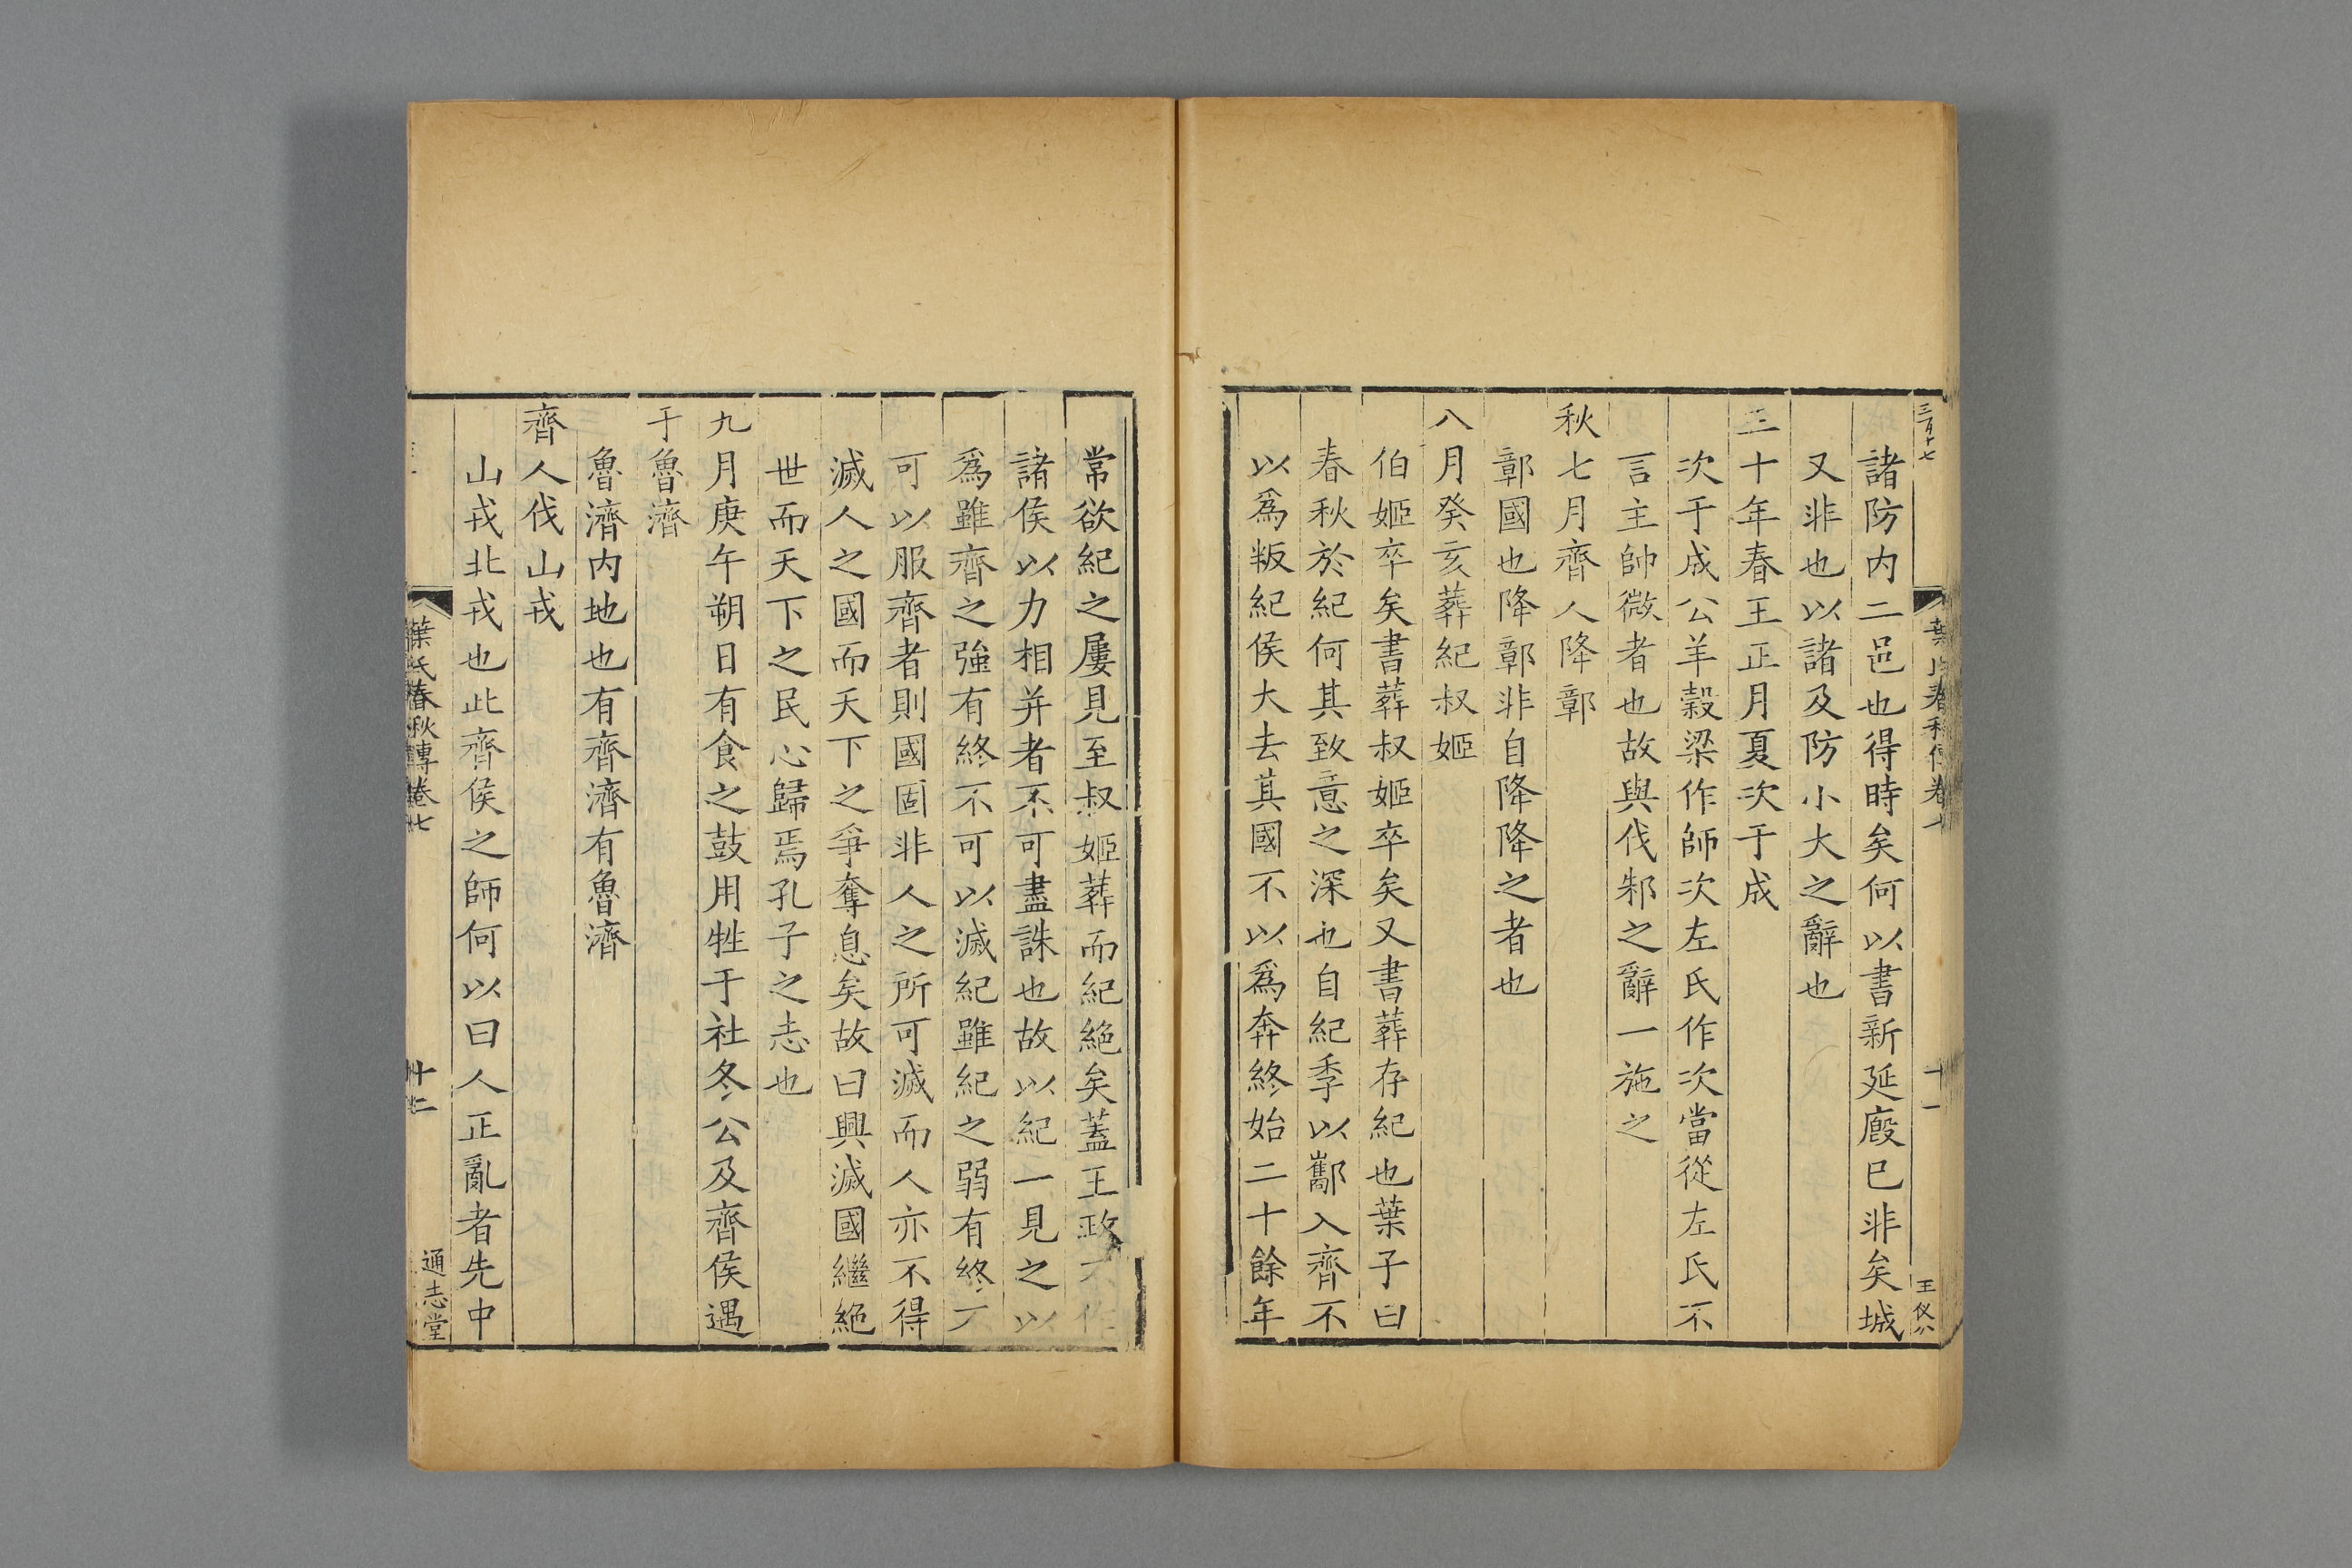 諸防内二邑也得時矣何以書新延廏已非矣城
又非也以諸及防小大之辭也
三十年春王正月夏次于成
次于成公羊穀梁作師次左氏作次當從左氏不
言主帥微者也故與伐邾之辭一施之
秋七月齊人降鄣
鄣國也降鄣非自降降之者也
八月癸亥葬紀叔姬
伯姬卒矣書葬叔姬卒矣又書葬存紀也葉子曰
春秋於紀何其致意之深也自紀季以酅入齊不
以爲叛紀侯大去其國不以爲奔終始二十餘年
常欲紀之屢見至叔姬葬而紀絶矣蓋王政
諸侯以力相并者不可盡誅也故以紀一見之以
爲雖齊之強有終不可以滅紀雖紀之弱有終
可以服齊者則國固非人之所可滅而人亦不得
滅人之國而天下之爭奪息矣故曰興滅國繼絶
世而天下之民心歸焉孔子之志也
九月庚午朔日有食之鼓用牲于社冬公及齊侯遇
于魯濟
魯濟内地也有齊濟有魯濟
齊人伐山戎
山戎北戎也此齊侯之師何以曰人正亂者先中
葉氏春秋傳卷七
十二
通志堂